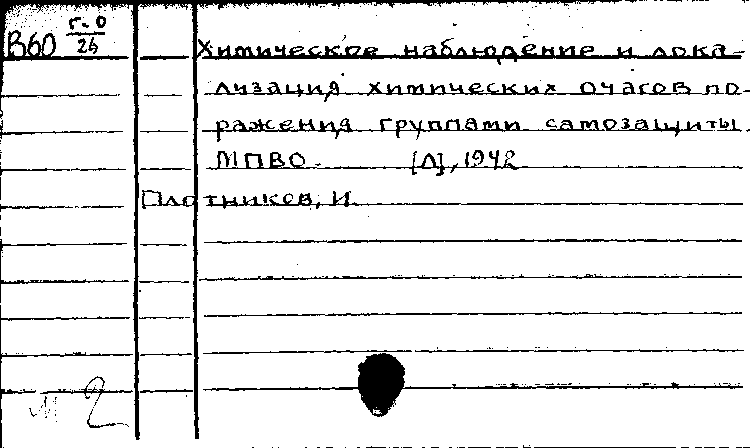 В60 г-0/25
Химическое наблюдение и лока-
лизация химических очагов по-
ражения группами самозащиты
МПВО. [Л], 1942
Плотников, И.
м 2